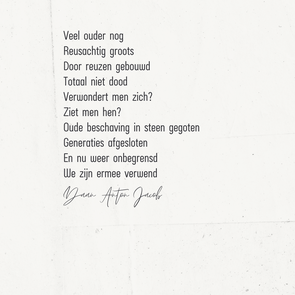 Veel ouder nog
Reusachtig groots
Door reuzen gebouwd
Totaal niet dood
Verwondert men zich?
Ziet men hen?
Oude beschaving in steen gegoten
Generaties afgesloten
En nu weer onbegrensd
We zijn ermee verwend
Daan Anton Jacob